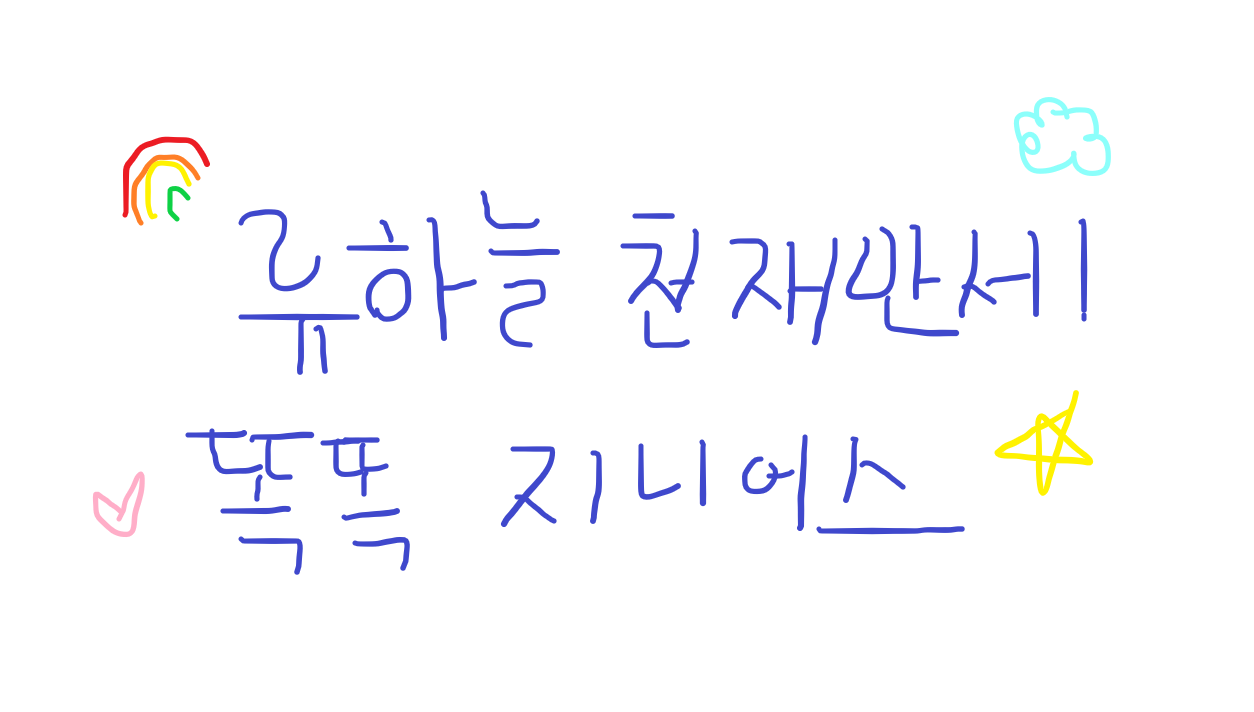 류하늘 천재만세!
똑똑 지니어스